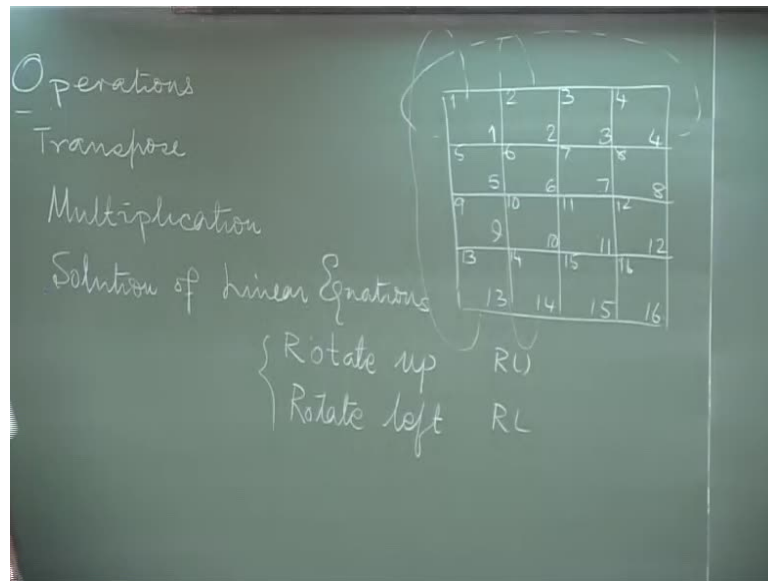 Operations
Transpose
Multiplication
Solution of Linear Equations
Rotate up RU
Rotate left RL
1 2 3 4
1 2 3 4
5 6 7 8
5 6 7 8
9 10 11 12
9 10 11 12
13 14 15 16
13 14 15 16